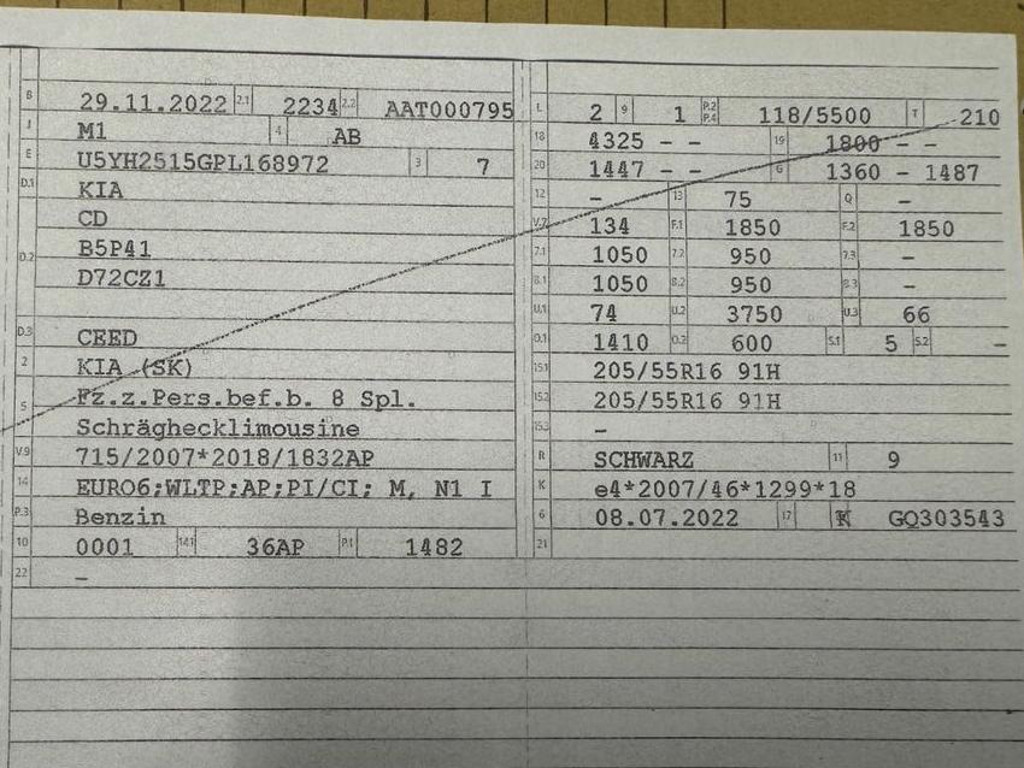 B 29.11.2022 2.1 2234 2.2 AAT000795
J M1 4 AB
E U5YH2515GPL168972 3 7
D.1 KIA
D.2 CD
B5P41
D72CZ1
D.3 CEED
2 KIA (SK)
5 Fz.z.Pers.bef.b. 8 Spl.
Schräghecklimousine
V.9 715/2007*2018/1832AP
14 EURO6;WLTP;AP;PI/CI; M, N1 I
P.3 Benzin
10 0001 14.1 36AP P.1 1482
22 –
L 2 9 1 P.2 P.4 118/5500 T 210
18 4325 – – 19 1800 – –
20 1447 – – G 1360 – 1487
12 – 13 75 Q –
V.7 134 F.1 1850 F.2 1850
7.1 1050 7.2 950 7.3 –
8.1 1050 8.2 950 8.3 –
U.1 74 U.2 3750 U.3 66
O.1 1410 O.2 600 S.1 5 S.2 –
15.1 205/55R16 91H
15.2 205/55R16 91H
15.3 –
R SCHWARZ 11 9
K e4*2007/46*1299*18
6 08.07.2022 17 K GQ303543
21